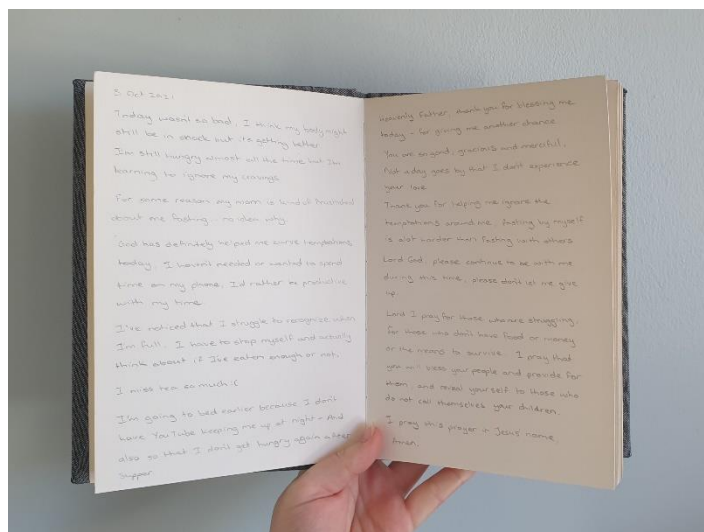 3 Oct 2021
Today wasn't so bad, I think my body might
still be in shock but it's getting better
I'm still hungry almost all the time but I'm
learning to ignore my cravings
For some reason my mom is kind of
about me fasting - no idea why.
God has definitely helped me temptations
today, I haven't needed or wanted to spend
time on my phone. I'd rather be productive
with my time
I've noticed that I struggle to recognize when
I'm full, I have to stop myself and actually
think about if I've eaten enough or not.
I miss tea so much :(
I'm going to bed earlier because I don't
have YouTube keeping me up at night - And
also so that I don't get hungry again after
supper
Heavenly Father, thank you for blessing me
today - for giving me another chance
You are so good, gracious and merciful,
Not a day goes by that I don't experience
your love
Thank you for helping me ignore the
temptations around me, fasting by myself
is alot harder than fasting with others
Lord God, please continue to be with me
during this time, please don't let me give
up.
Lord I pray for those who are struggling,
for those who don't have food or money
or the means to survive. I pray that
you will bless your people and provide for
them, and reveal yourself to those who
do not call themselves your children.
I pray this prayer in Jesus' name,
Amen.